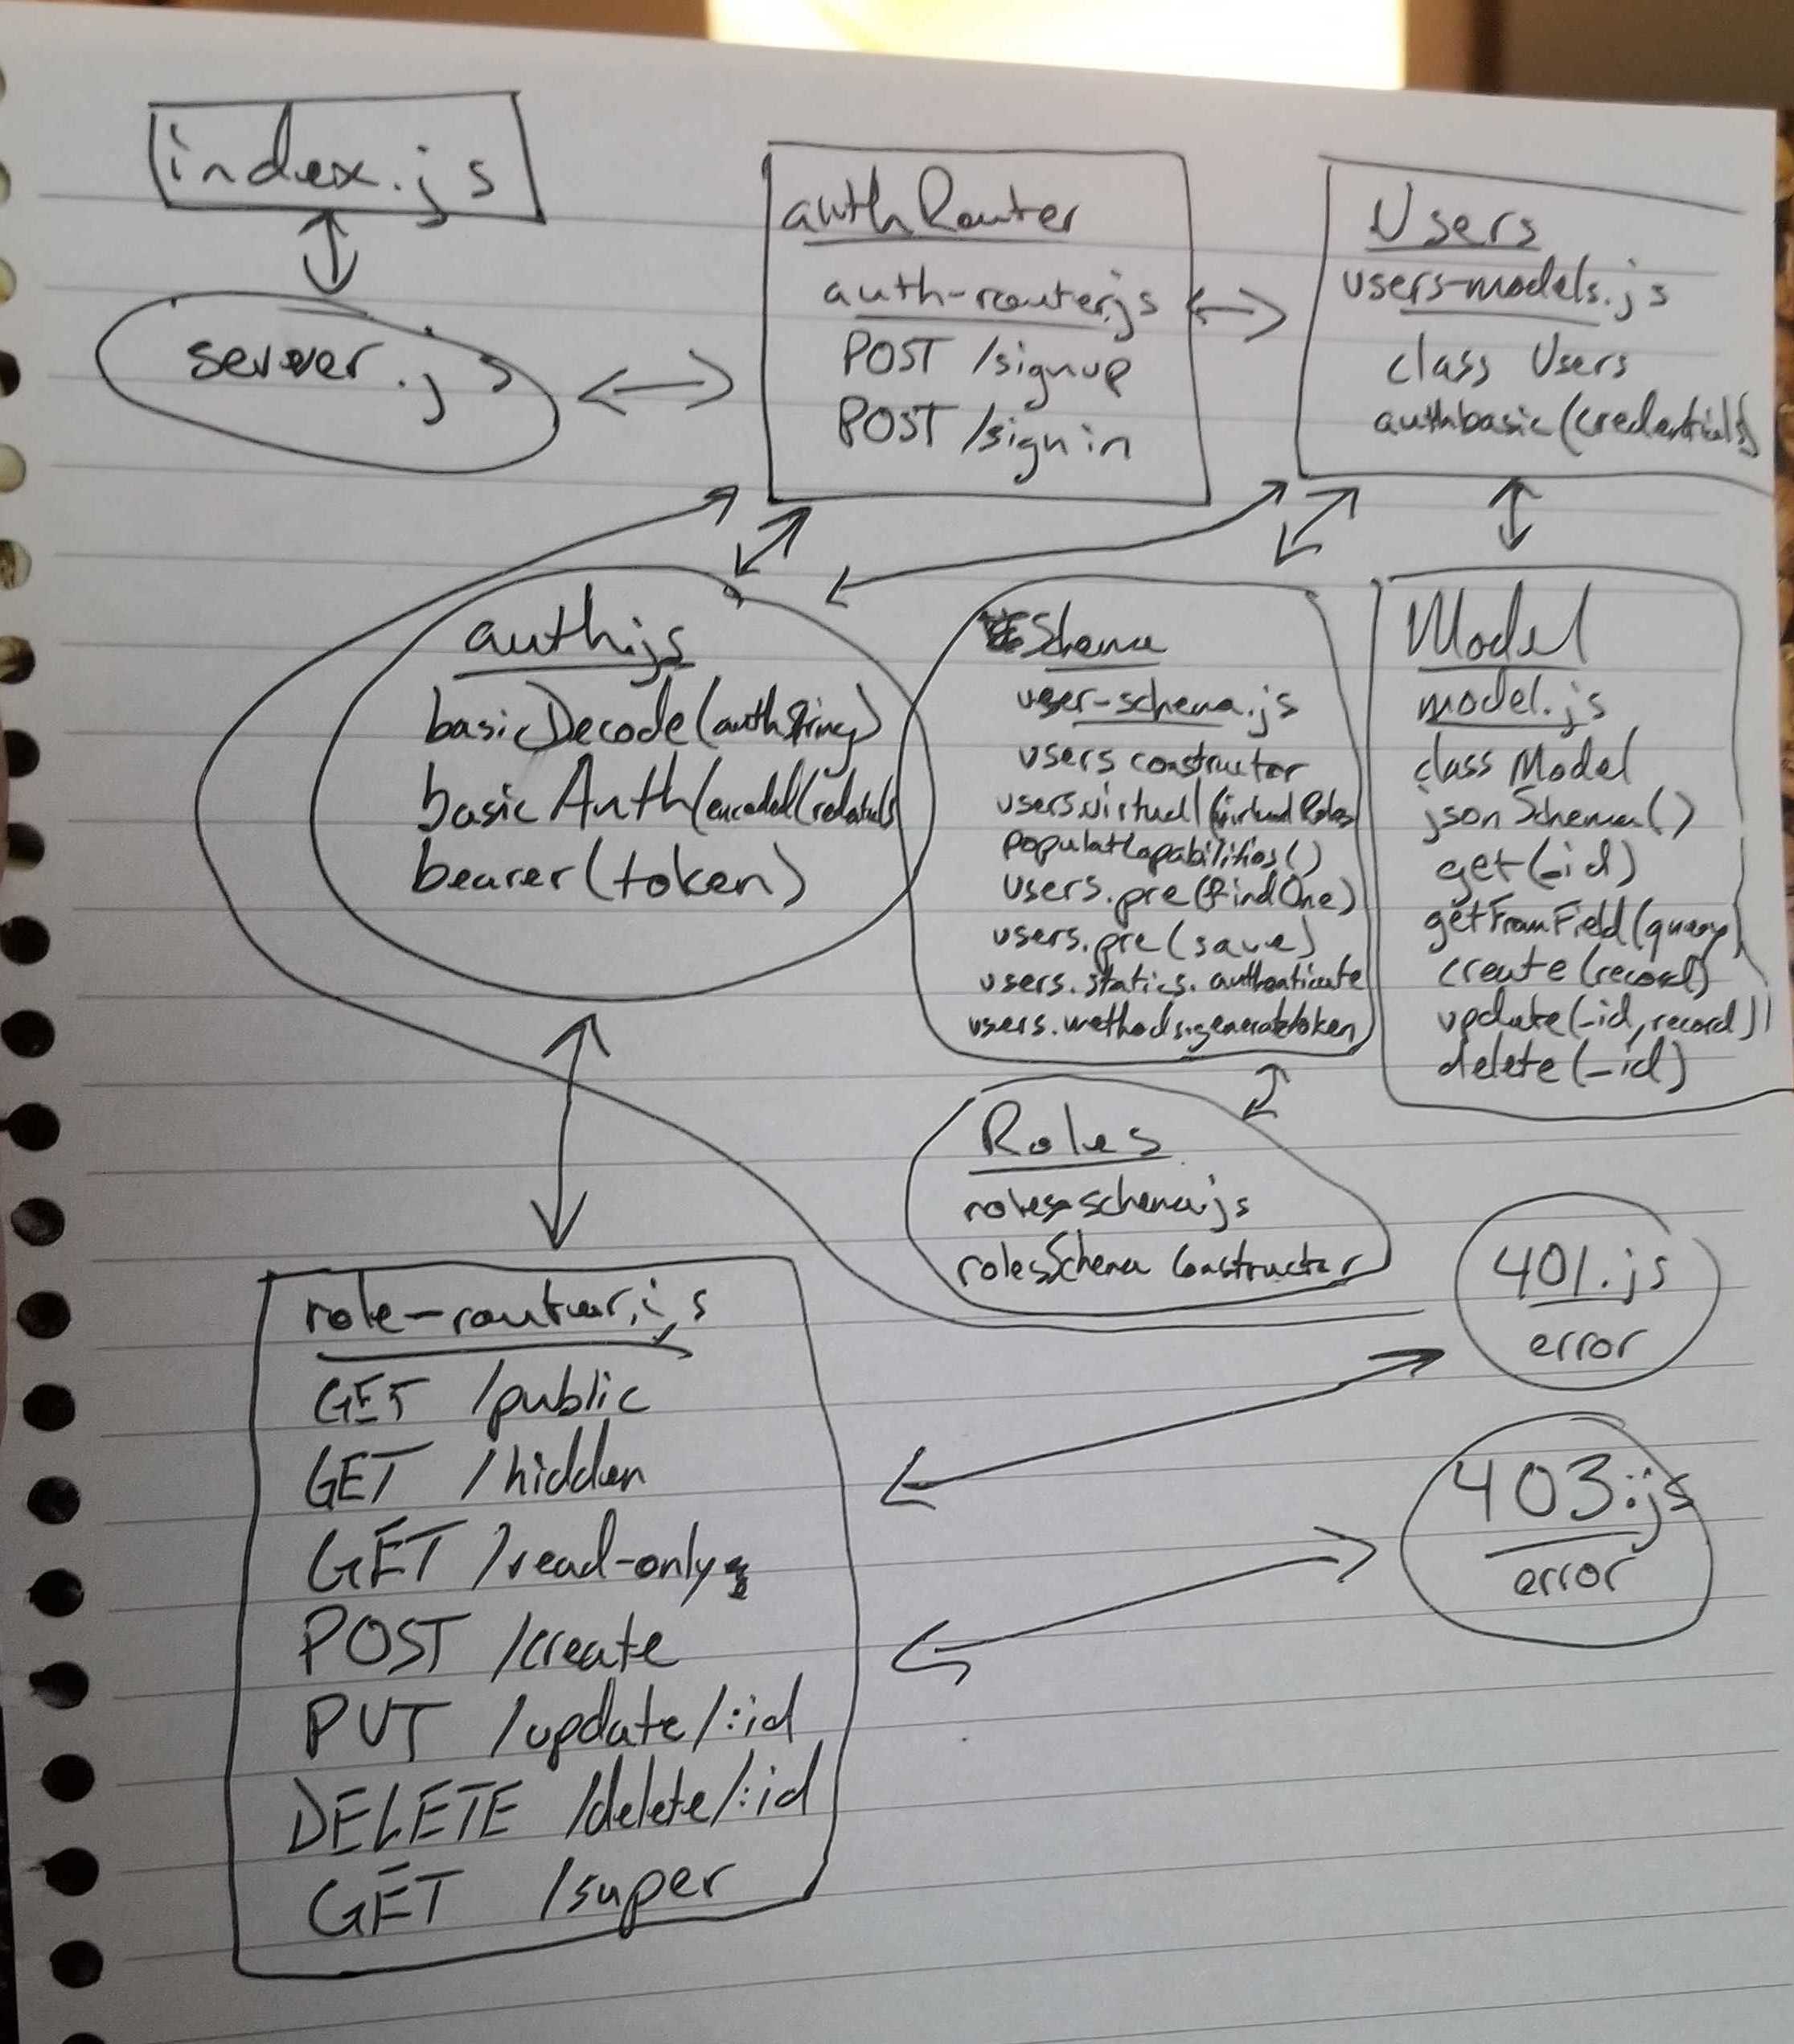 index.js
server.js
authRouter
auth-router.js
POST /signup
POST /signin
Users
users-models.js
class Users
authbasic(credentials)
auth.js
basicDecode(authString)
basicAuth(encodedCredentials)
bearer(token)
Schema
user-schema.js
users constructor
users.virtual(virtualRoles
populatCapabilities()
users.pre(findOne)
users.pre(save)
users.statics.authenticate
users.methods.generatetoken
Model
model.js
class Model
jsonSchema()
get(_id)
getFromField(query)
create(record)
update(_id,record)
delete(_id)
Roles
roles-schema.js
rolesSchema Constructor
401.js
error
403.js
error
role-router.js
GET /public
GET /hidden
GET /read-only
POST /create
PUT /update/:id
DELETE /delete/:id
GET /super